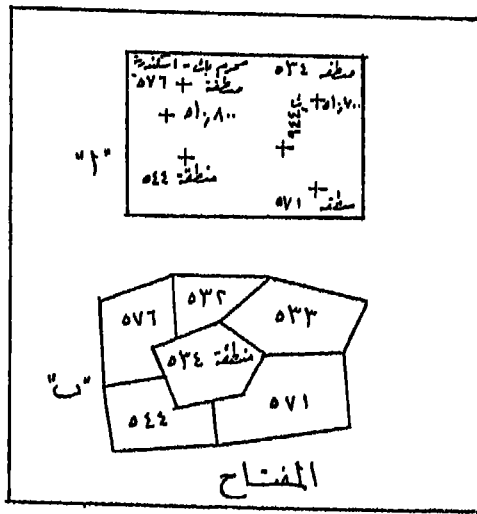 محرم بك - اسكندرية
منطقة ٥٧٦
منطقة ٥٣٤
٥١,٨٠٠
٥١,٧٠٠
"أ"
منطقة ٥٤٤
منطقة ٥٧١
٥٣٢
٥٧٦
٥٣٣
منطقة ٥٣٤
"ب"
٥٤٤
٥٧١
المفتاح